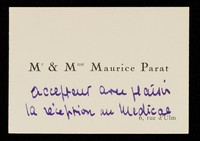 Mr & Mme Maurice Parat
acceptent avec plaisir
la réception au Medicae
6, rue d'Ulm